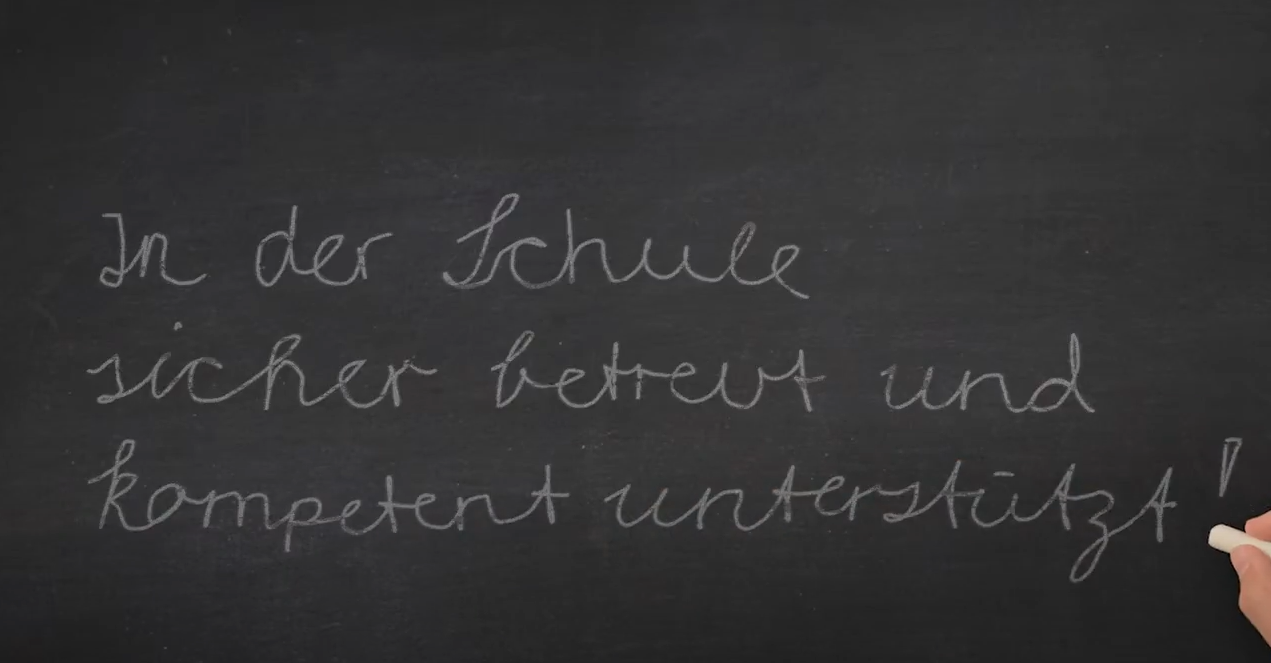 In der Schule
sicher betreut und
kompetent unterstützt!